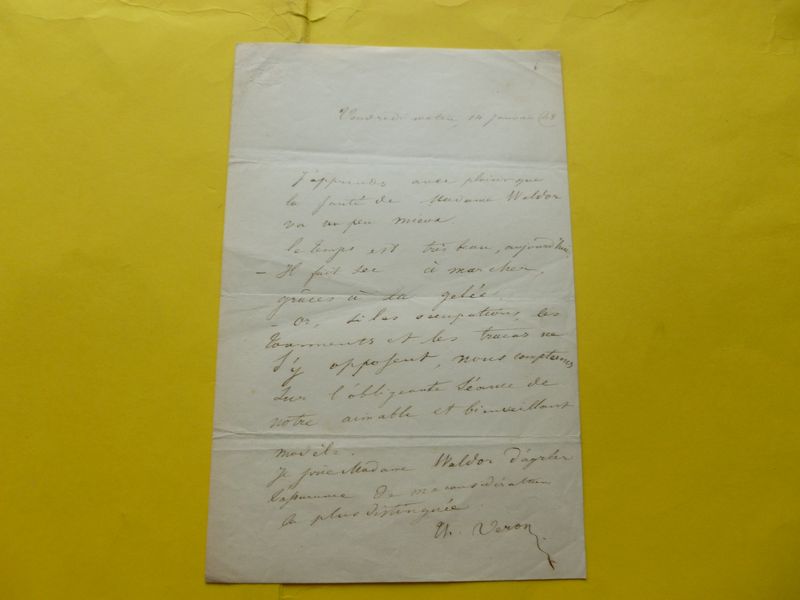 Vendredi matin, 14 janvier 48
J'apprends avec plaisir que
la santé de Madame Waldor
va un peu mieux
le temps est très beau, aujourd'hui,
– Il fait sec à marcher,
grâces à la gelée.
– or, si les occupations, les
tourments et les tracas ne
s'y opposent, nous comptons
sur l'obligeante séance de
notre aimable et bienveillant
modèle.
Je prie Madame Waldor d'agréer
l'assurance de ma considération
la plus distinguée.
Th. Veron